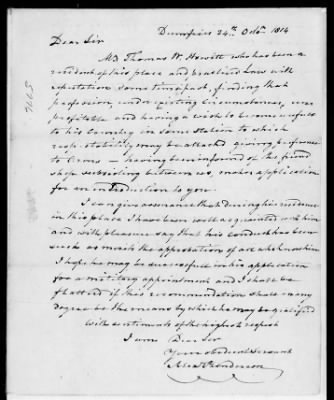 Dumfries 24th Octr. 1814
Dear Sir
Mr Thomas W. Hewitt who has been a
resident of this place and practised Law with
reputation some time past, finding that
profession, under existing circumstances, un-
profitable and having a wish to become useful
to his Country in some station to which
respectability may be attached giving preference
to Arms — having been informed of the friend
ship subsisting between us, makes application
for an introduction to you.
I can give assurance that during his residence
in this place I have been well acquainted with him
and with pleasure say that his conduct has been
such as mark the approbation of all who know him
I hope he may be successful in his application
for a military appointment and I shall be
flattered if this recommendation shall in any
degree be the means by which he may be gratified
with sentiments of the highest respect
I am Dear Sir
Your obedient Servant
Alexr Henderson